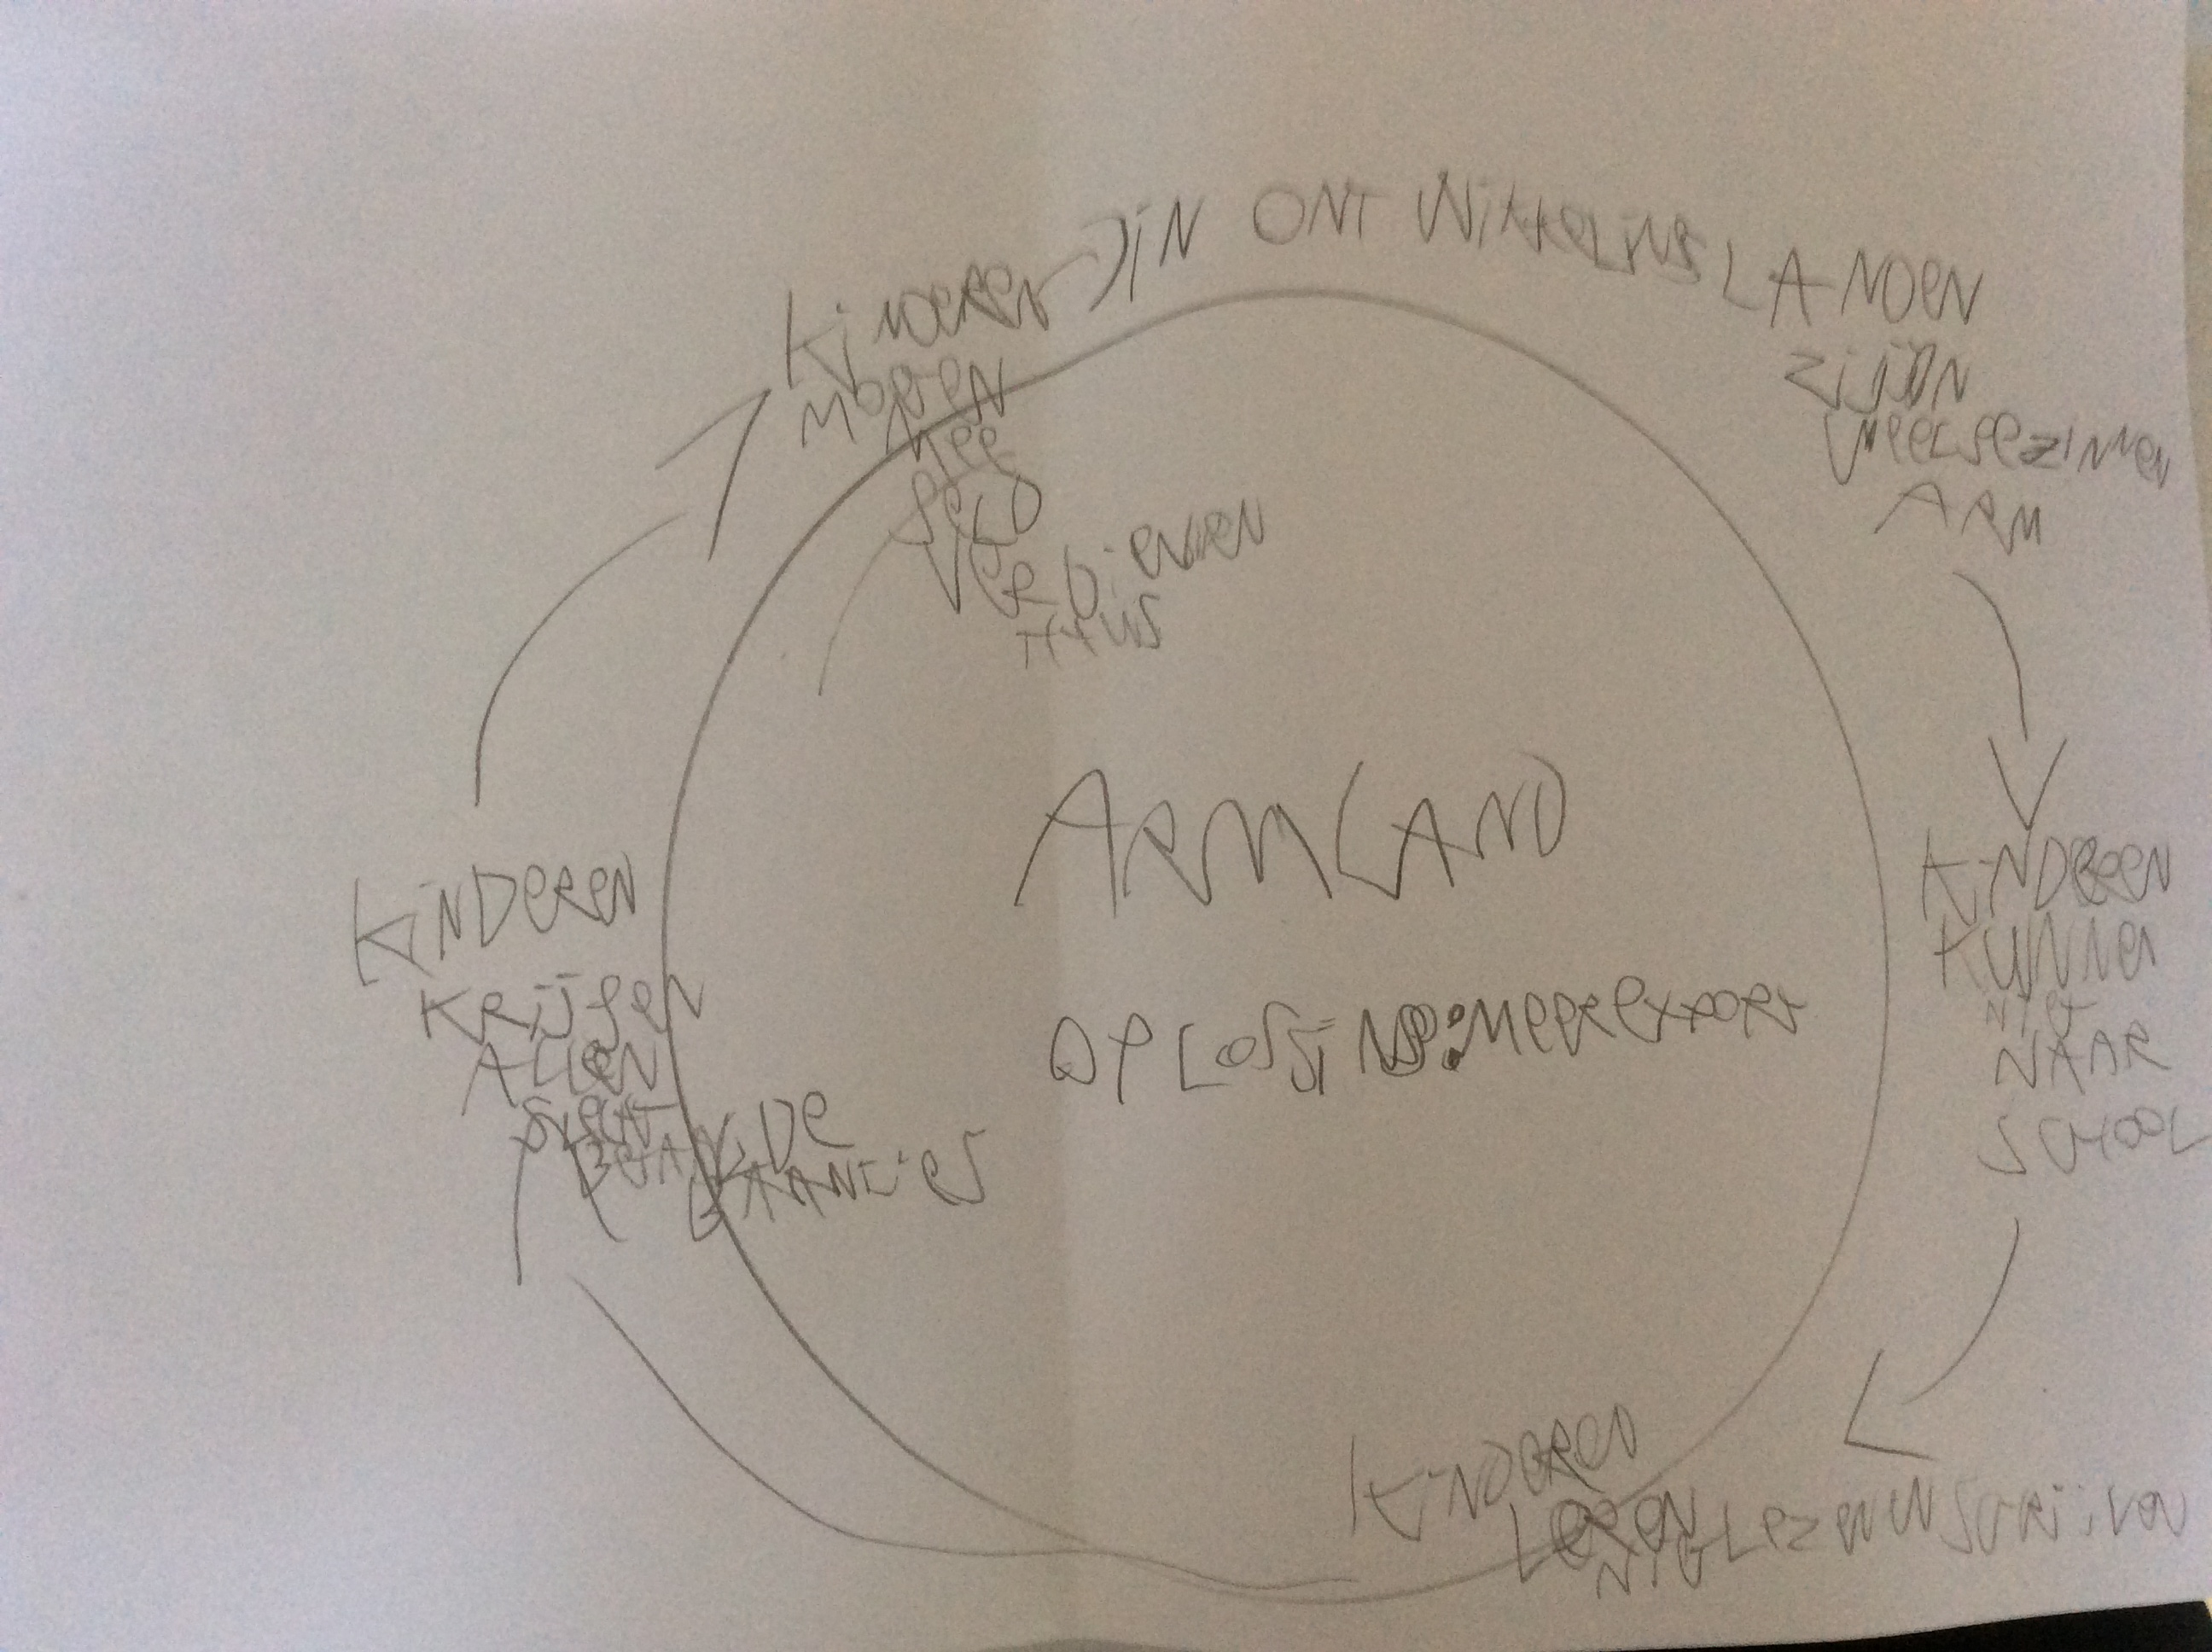 IN ONTWIKKELINGSLANDEN
ZIJN
VEEL GEZINNEN
ARM
KINDEREN
KUNNEN
NIET
NAAR
SCHOOL
KINDEREN
LEREN
NIET LEZEN EN SCHRIJVEN
KINDEREN
KRIJGEN
ALLEEN
SLECHT
BETAALDE
BAANTJES
KINDEREN
MOETEN
MEE
GELD
VERDIENEN
THUIS
ARM LAND
OPLOSSING: MEER EXPORT